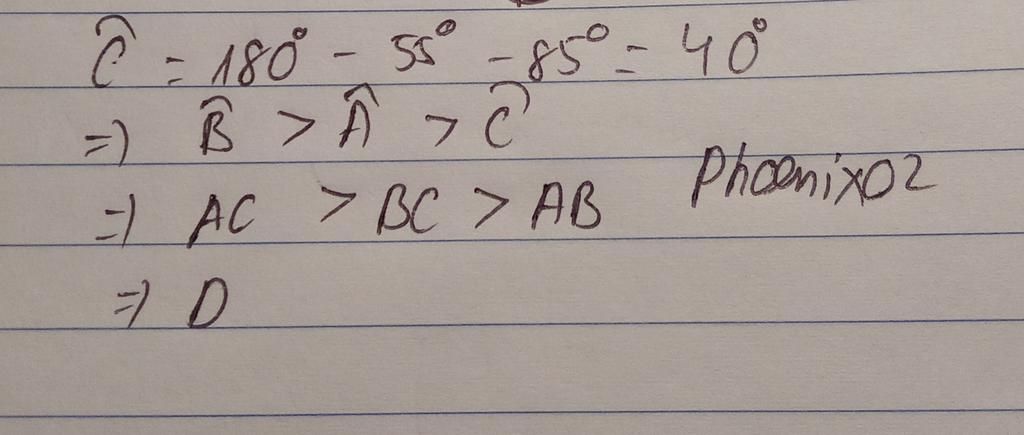 Ĉ = 180° - 55° - 85° = 40°
=) B̂ > Â > Ĉ
=) AC > BC > AB Phoenix02
=) D